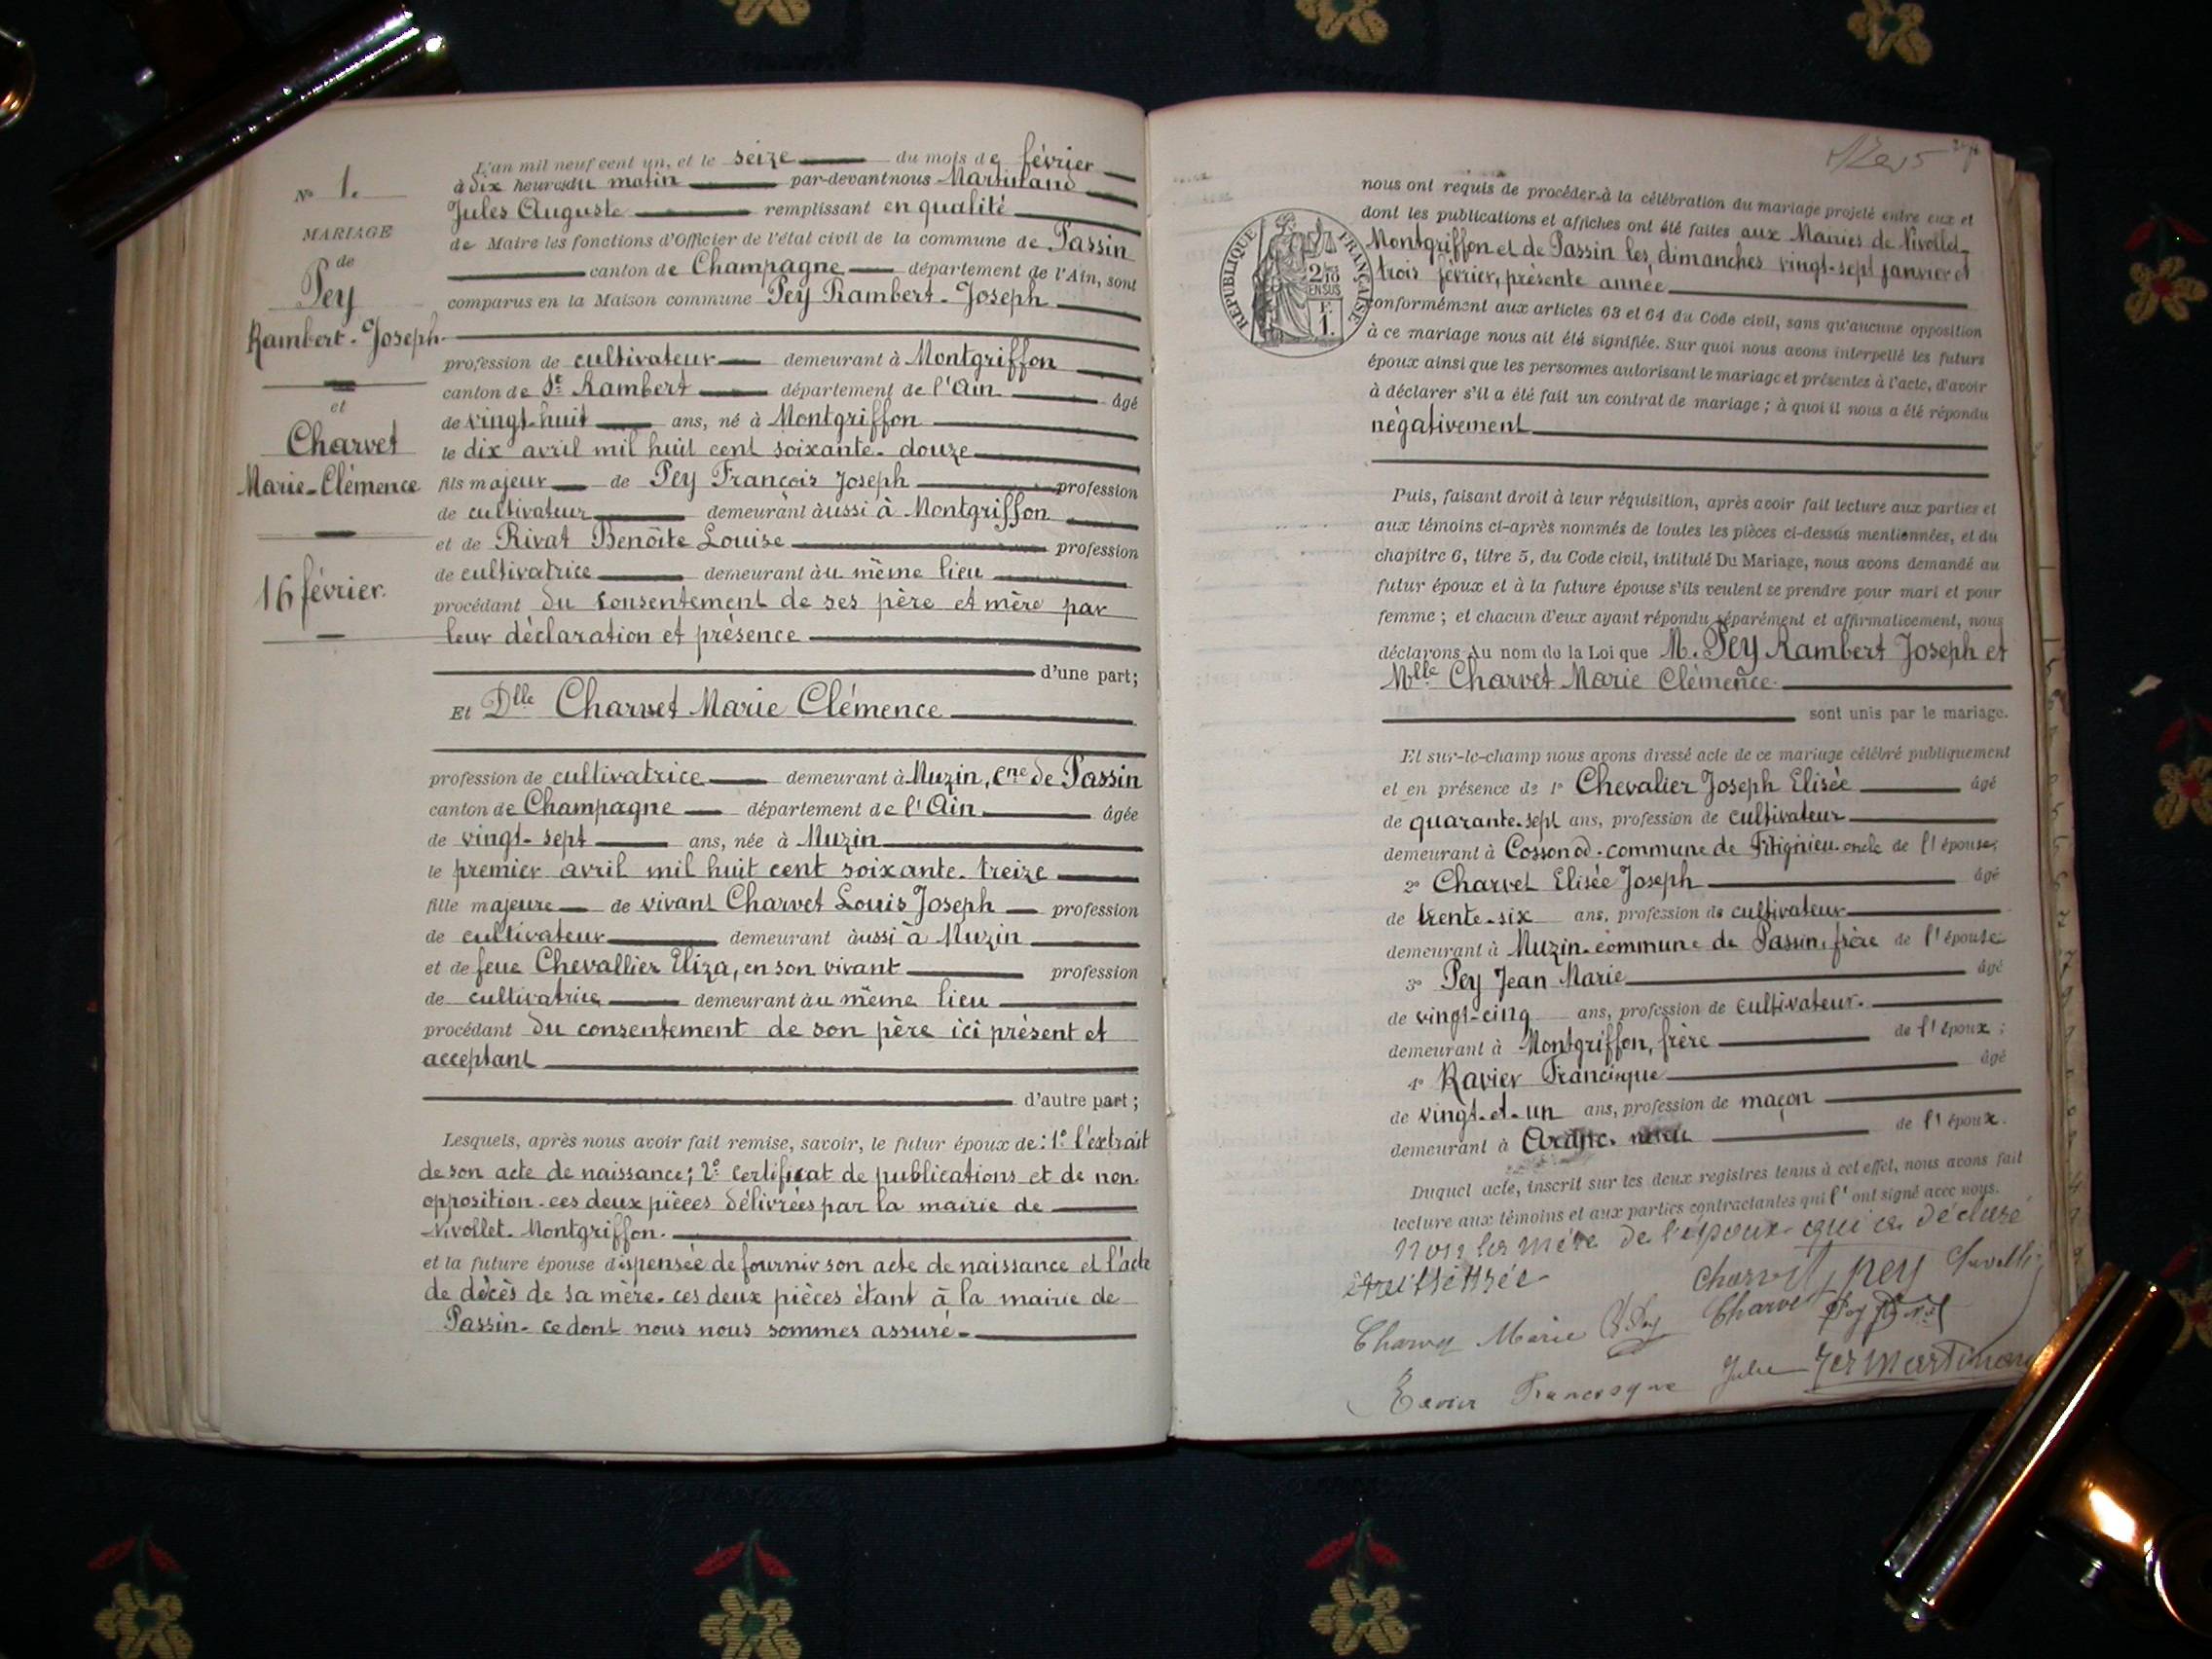 L'an mil neuf cent un, et le seize du mois de février
à dix heures du matin par-devant nous Martinand
Jules Auguste remplissant en qualité
de Maire les fonctions d'Officier de l'état civil de la commune de Passin
canton de Champagne département de l'Ain, sont
comparus en la Maison commune Pey Rambert-Joseph
profession de cultivateur demeurant à Montgriffon
canton de St Rambert département de l'Ain âgé
de vingt-huit ans, né à Montgriffon
le dix avril mil huit cent soixante-douze
fils majeur de Pey François Joseph profession
de cultivateur demeurant aussi à Montgriffon
et de Rivat Benoîte Louise profession
de cultivatrice demeurant au même lieu
procédant du consentement de ses père et mère par
leur déclaration et présence
d'une part;
Et Dlle Charvet Marie Clémence
profession de cultivatrice demeurant à Muzin, cne de Passin
canton de Champagne département de l'Ain âgée
de vingt-sept ans, née à Muzin
le premier avril mil huit cent soixante-treize
fille majeure de vivant Charvet Louis Joseph profession
de cultivateur demeurant aussi à Muzin
et de feue Chevallier Eliza, en son vivant profession
de cultivatrice demeurant au même lieu
procédant du consentement de son père ici présent et
acceptant
d'autre part;
Lesquels, après nous avoir fait remise, savoir, le futur époux de: 1° l'extrait
de son acte de naissance; 2° Certificat de publications et de non-
opposition-ces deux pièces délivrées par la mairie de
Nivollet-Montgriffon.
et la future épouse dispensée de fournir son acte de naissance et l'acte
de décès de sa mère-ces deux pièces étant à la mairie de
Passin-ce dont nous nous sommes assuré-
N° 1.
MARIAGE
de
Pey
Rambert-Joseph
et
Charvet
Marie-Clémence
16 février.
nous ont requis de procéder à la célébration du mariage projeté entre eux et
dont les publications et affiches ont été faites aux Mairies de Nivollet-
Montgriffon et de Passin les dimanches vingt-sept janvier et
trois février, présente année
conformément aux articles 63 et 64 du Code civil, sans qu'aucune opposition
à ce mariage nous ait été signifiée. Sur quoi nous avons interpellé les futurs
époux ainsi que les personnes autorisant le mariage et présentes à l'acte, d'avoir
à déclarer s'il a été fait un contrat de mariage; à quoi il nous a été répondu
négativement
RÉPUBLIQUE FRANÇAISE
2/10
EN SUS
F
1.
Puis, faisant droit à leur réquisition, après avoir fait lecture aux parties et
aux témoins ci-après nommés de toutes les pièces ci-dessus mentionnées, et du
chapitre 6, titre 5, du Code civil, intitulé Du Mariage, nous avons demandé au
futur époux et à la future épouse s'ils veulent se prendre pour mari et pour
femme; et chacun d'eux ayant répondu séparément et affirmativement, nous
déclarons Au nom de la Loi que M. Pey Rambert Joseph et
Mlle Charvet Marie Clémence
sont unis par le mariage.
Et sur-le-champ nous avons dressé acte de ce mariage célébré publiquement
et en présence de 1° Chevalier Joseph Elisée âgé
de quarante-sept ans, profession de cultivateur
demeurant à Cossonod-commune de oncle de l'épouse;
2° Charvet Elisée Joseph âgé
de trente-six ans, profession de cultivateur
demeurant à Muzin-commune de Passin, frère de l'épouse
3° Pey Jean Marie âgé
de vingt-cinq ans, profession de cultivateur.
demeurant à Montgriffon, frère de l'époux;
4° Ravier Francisque âgé
de vingt-et-un ans, profession de maçon
demeurant à Aranc. de l'époux.
Duquel acte, inscrit sur les deux registres tenus à cet effet, nous avons fait
lecture aux témoins et aux parties contractantes qui l'ont signé avec nous.
non la mère de l'époux qui a déclaré
être illétrée
Charvet pey
Marie Charvet
Francisque Jules